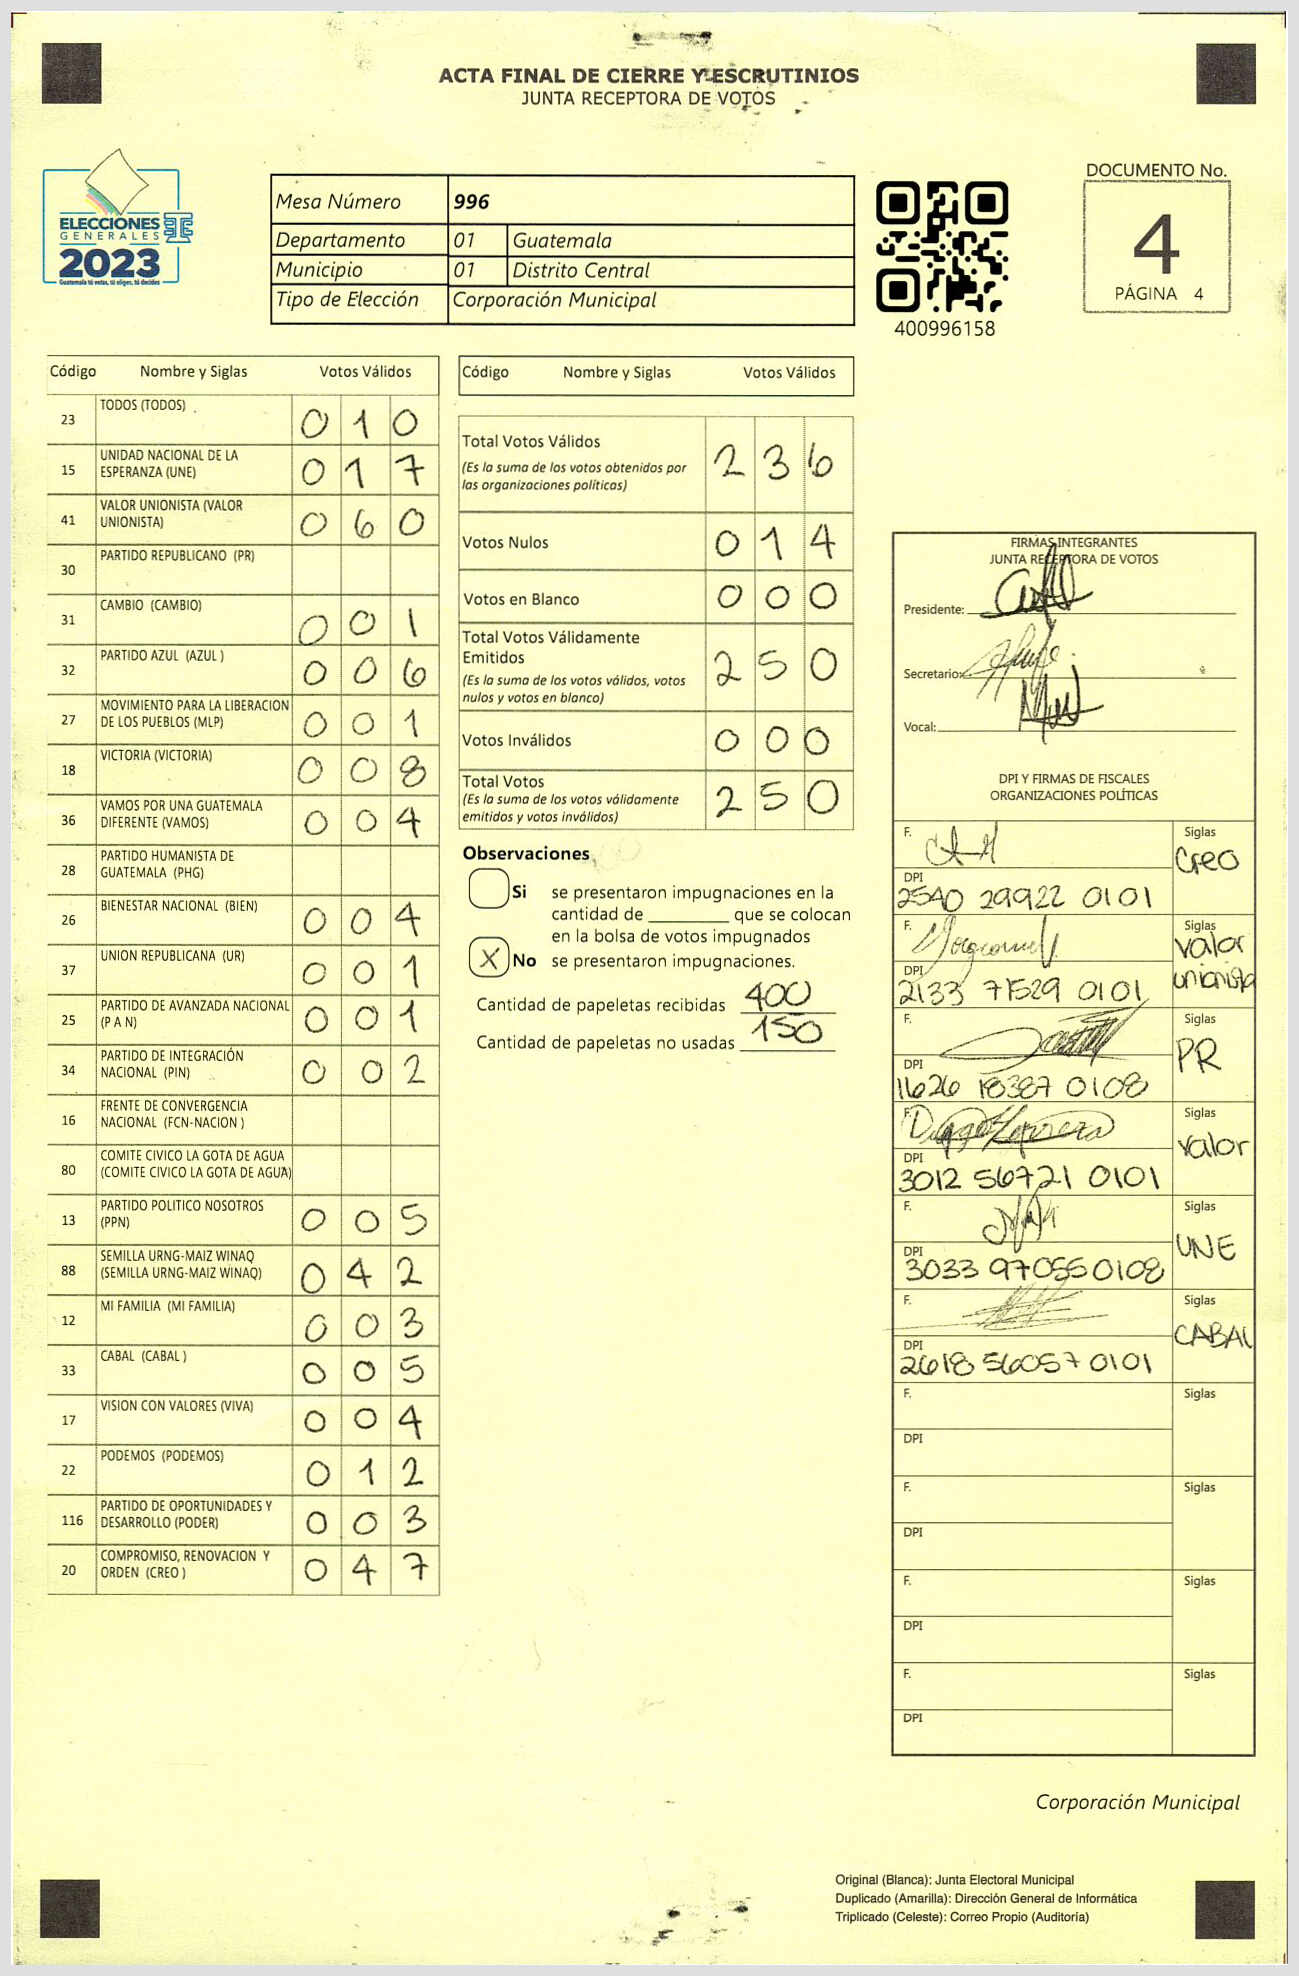 ACTA FINAL DE CIERRE Y ESCRUTINIOS
JUNTA RECEPTORA DE VOTOS
ELECCIONES
GENERALES
2023
Guatemala tú votas, tú eliges, tú decides
Mesa Número 996
Departamento 01 Guatemala
Municipio 01 Distrito Central
Tipo de Elección Corporación Municipal
400996158
DOCUMENTO No.
4
PÁGINA 4
Código Nombre y Siglas Votos Válidos
23 TODOS (TODOS) 0 1 0
15 UNIDAD NACIONAL DE LA
ESPERANZA (UNE) 0 1 7
41 VALOR UNIONISTA (VALOR
UNIONISTA) 0 6 0
30 PARTIDO REPUBLICANO (PR)
31 CAMBIO (CAMBIO) 0 0 1
32 PARTIDO AZUL (AZUL ) 0 0 6
27 MOVIMIENTO PARA LA LIBERACION
DE LOS PUEBLOS (MLP) 0 0 1
18 VICTORIA (VICTORIA) 0 0 8
36 VAMOS POR UNA GUATEMALA
DIFERENTE (VAMOS) 0 0 4
28 PARTIDO HUMANISTA DE
GUATEMALA (PHG)
26 BIENESTAR NACIONAL (BIEN) 0 0 4
37 UNION REPUBLICANA (UR) 0 0 1
25 PARTIDO DE AVANZADA NACIONAL
(P A N) 0 0 1
34 PARTIDO DE INTEGRACIÓN
NACIONAL (PIN) 0 0 2
16 FRENTE DE CONVERGENCIA
NACIONAL (FCN-NACION )
80 COMITE CIVICO LA GOTA DE AGUA
(COMITE CIVICO LA GOTA DE AGUA)
13 PARTIDO POLITICO NOSOTROS
(PPN) 0 0 5
88 SEMILLA URNG-MAIZ WINAQ
(SEMILLA URNG-MAIZ WINAQ) 0 4 2
12 MI FAMILIA (MI FAMILIA) 0 0 3
33 CABAL (CABAL ) 0 0 5
17 VISION CON VALORES (VIVA) 0 0 4
22 PODEMOS (PODEMOS) 0 1 2
116 PARTIDO DE OPORTUNIDADES Y
DESARROLLO (PODER) 0 0 3
20 COMPROMISO, RENOVACION Y
ORDEN (CREO ) 0 4 7
Código Nombre y Siglas Votos Válidos
Total Votos Válidos 2 3 6
(Es la suma de los votos obtenidos por
las organizaciones políticas)
Votos Nulos 0 1 4
Votos en Blanco 0 0 0
Total Votos Válidamente
Emitidos 2 5 0
(Es la suma de los votos válidos, votos
nulos y votos en blanco)
Votos Inválidos 0 0 0
Total Votos 2 5 0
(Es la suma de los votos válidamente
emitidos y votos inválidos)
Observaciones
Si se presentaron impugnaciones en la
cantidad de ________ que se colocan
en la bolsa de votos impugnados
X No se presentaron impugnaciones.
Cantidad de papeletas recibidas 400
Cantidad de papeletas no usadas 150
FIRMAS INTEGRANTES
JUNTA RECEPTORA DE VOTOS
Presidente:
Secretario:
Vocal:
DPI Y FIRMAS DE FISCALES
ORGANIZACIONES POLÍTICAS
F. Siglas
Creo
DPI
2540 29922 0101
F. Siglas
valor
unionista
DPI
2133 71529 0101
F. Siglas
PR
DPI
1626 18387 0108
F. Siglas
valor
DPI
3012 56721 0101
F. Siglas
UNE
DPI
3033 97055 0108
F. Siglas
CABAL
DPI
2618 56057 0101
F. Siglas
DPI
F. Siglas
DPI
F. Siglas
DPI
F. Siglas
DPI
Corporación Municipal
Original (Blanca): Junta Electoral Municipal
Duplicado (Amarilla): Dirección General de Informática
Triplicado (Celeste): Correo Propio (Auditoría)